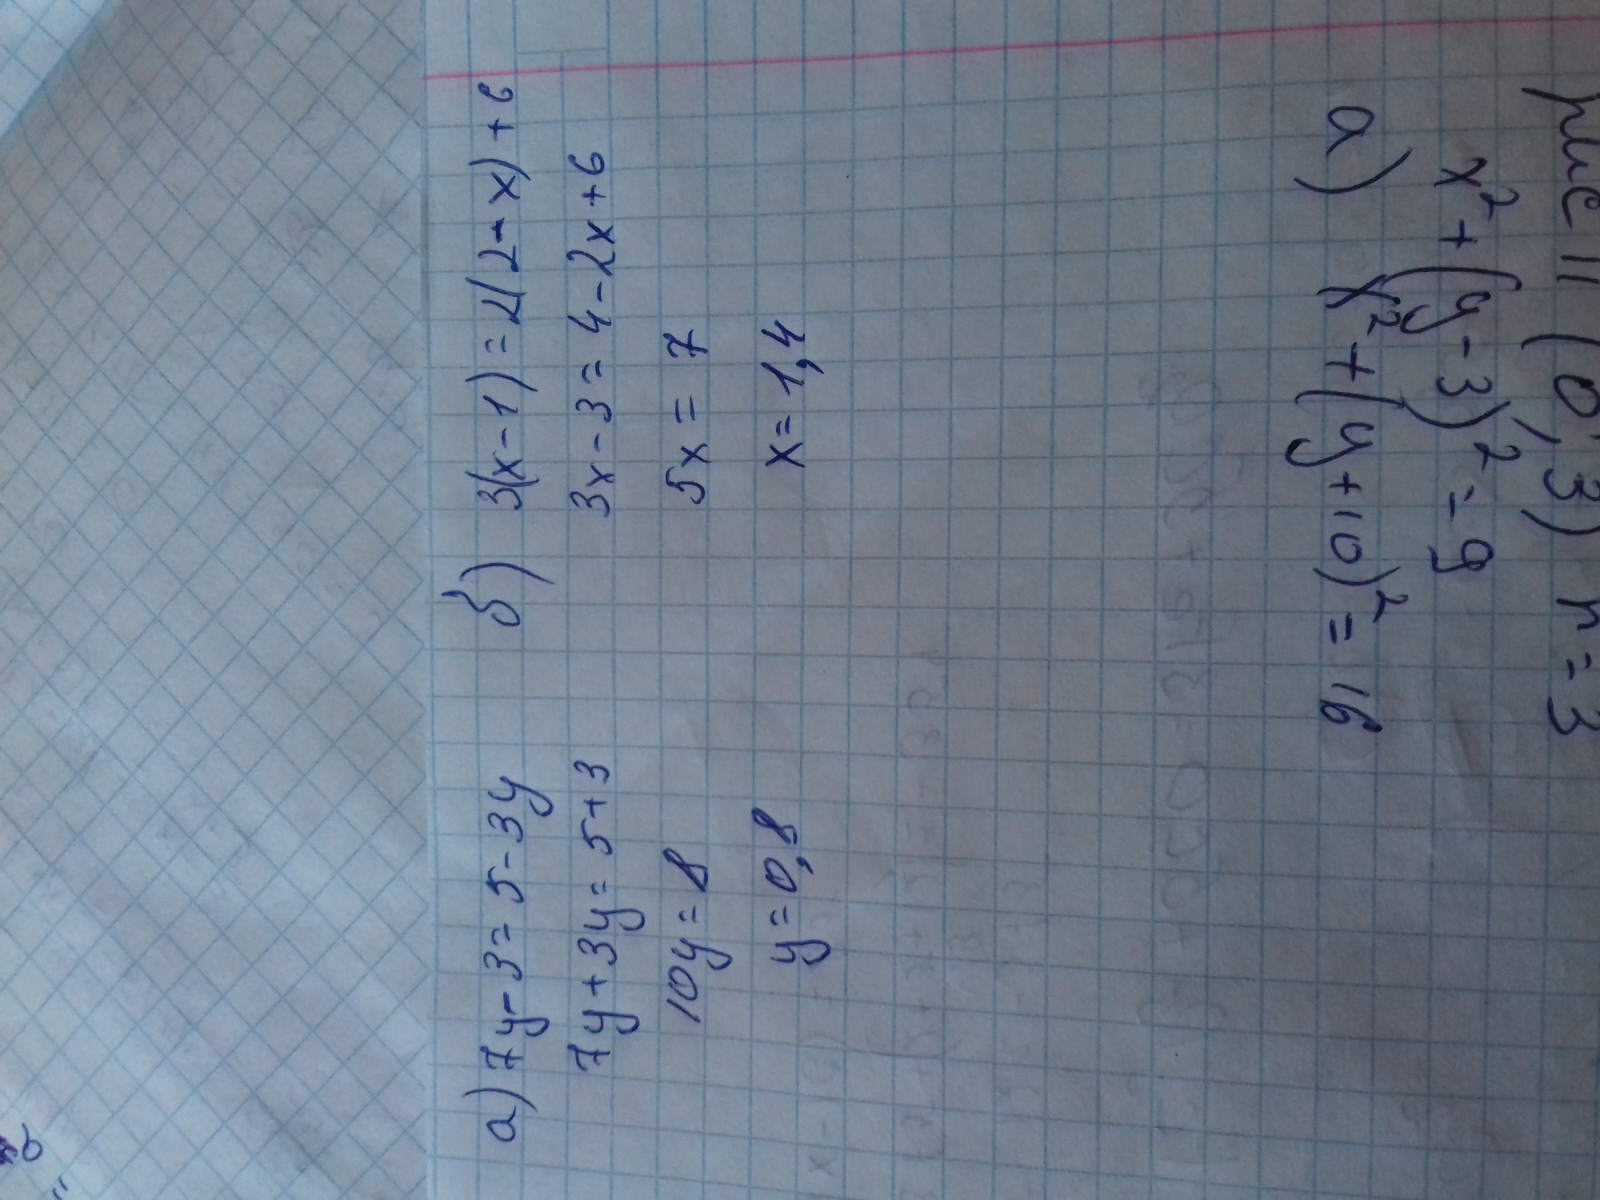 а) 7y-3=5-3y
7y+3y=5+3
10y=8
y=0,8
б) 3(x-1)=2(2-x)+6
3x-3=4-2x+6
5x=7
x=1,4
рис 11 (0;3) r=3
x²+(y-3)²=9
а) x²+(y+10)²=16